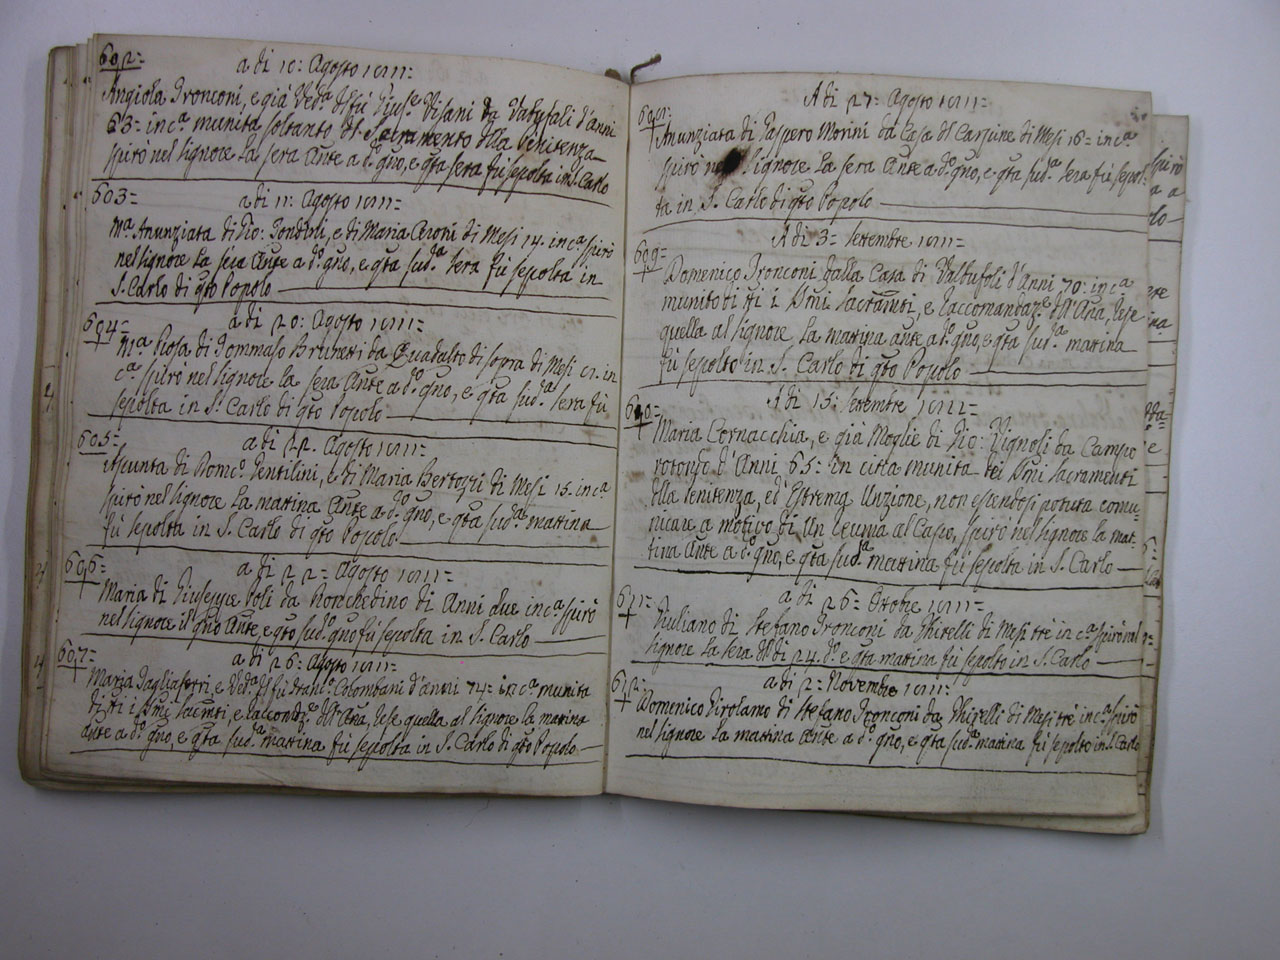 602=
a di 10: Agosto 1811=
Angiola Tronconi, e già Ved.ª del fu Gius.e Visani da Valbufali d'Anni
63= inc.ª munita soltanto del Sacramento della Penitenza
spirò nel Signore la sera Ante a d.º gno, e qta sera fù sepolta in S. Carlo
603=
a di 11: Agosto 1811=
M.ª Anunziata di Gio: Tondini, e di Maria Ceroni di Mesi 14. inc.ª spirò
nel Signore la sera Ante a d.º gno, e qta sud.ª sera fù sepolta in
S. Carlo di qto Popolo
604=
a di 20: Agosto 1811=
M.ª Rosa di Tommaso Brunetti da Quadalto di sopra di Mesi in
c.ª spirò nel Signore la sera Ante a d.º gno, e qta sud.ª sera fù
sepolta in S. Carlo di qto Popolo
605=
a di 22. Agosto 1811=
Asunta di Dom.co Gentilini, e di Maria Bertozzi di Mesi 15. inc.ª
spirò nel Signore la matina Ante a d.º gno, e qta sud.ª mattina
fù sepolta in S. Carlo di qto Popolo
606=
a di 22= Agosto 1811=
Maria di Giuseppe Poli da Ronchedino di Anni due inc.ª spirò
nel Signore il gno Ante, e qto sud.º gno fù sepolta in S. Carlo
607=
a di 26= Agosto 1811=
Maria Tagliaferri, e Ved.ª del fù Fran.co Colombani d'anni 74= inc.ª munita
di tti i Smi Sacmti, e raccondz.e dell'Ana, rese quella al Signore la matina
ante a d.º gno, e qta sud.ª mattina fù sepolta in S. Carlo di qto Popolo
608=
A di 27= Agosto 1811=
Anunziata di Gaspero Morini da Casa del Carzine di Mesi 16= inc.ª
spirò nel Signore la sera Ante a d.º gno, e qta sud.ª sera fù sepol:
ta in S. Carlo di qto Popolo
609=
A di 3= Settembre 1811=
Domenico Tronconi dalla Casa di Valbufoli d'Anni 70= inc.ª
munito di tti i Smi Sacramti, e raccomandaz.e dell'Ana, rese
quella al Signore la mattina ante a d.º gno, e qta sud.ª mattina
fù sepolto in S. Carlo di qto Popolo
610=
A di 15= Settembre 1811=
Maria Cornacchia, e già Moglie di Gio: Vignoli da Campo
rotondo d'Anni 65= in citta munita dei Smi Sacramenti
della Penitenza, ed Estrema Unzione, non essendosi potuta comu-
nicare a motivo di Un Reuma al Capo, spirò nel Signore la mat-
tina Ante a d.º gno, e qta sud.ª mattina fù sepolta in S. Carlo
611=
a di 26= Ottobre 1811=
Giuliano di Stefano Tronconi da Ghirelli di Mesi trè in c.ª spirò nel
Signore la sera del di 24. d.º e qta matina fù sepolto in S. Carlo
612=
a di 2= Novembre 1811=
Domenico Girolamo di Stefano Tronconi da Ghirelli di Mesi trè inc.ª spirò
nel Signore la mattina Ante a d.º gno, e qta sud.ª matina fù sepolto in S. Carlo